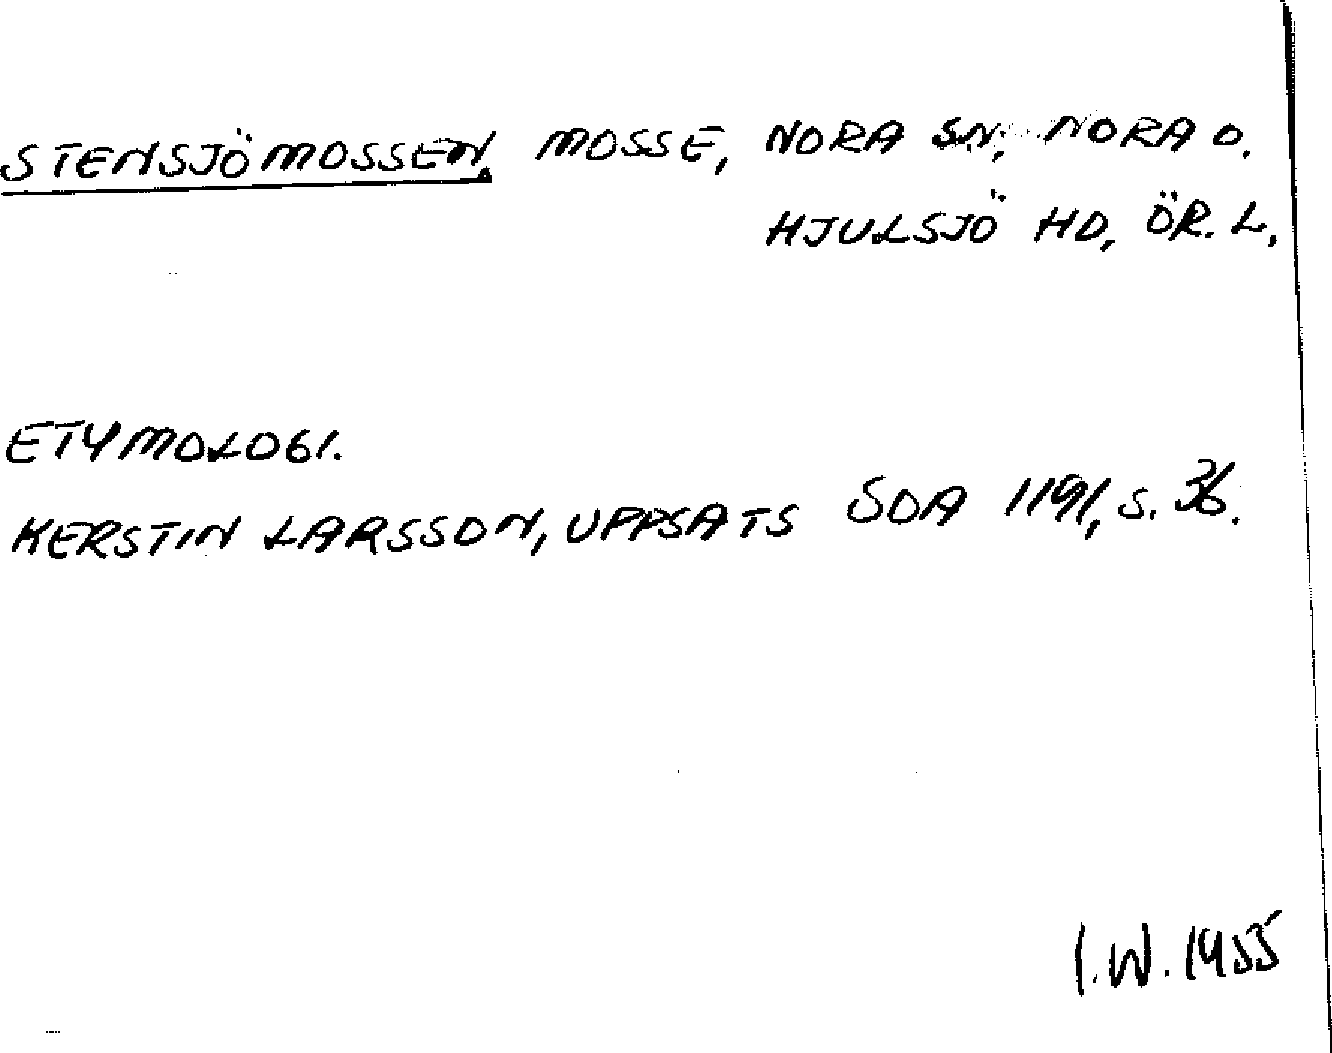 STENSJÖMOSSEN, MOSSE, NORA SN, NORA O.
HJULSJÖ HD, ÖR. L,
ETYMOLOGI.
KERSTIN LARSSON, UPPSATS SOA 1191, S. 36.
I.W. 1955